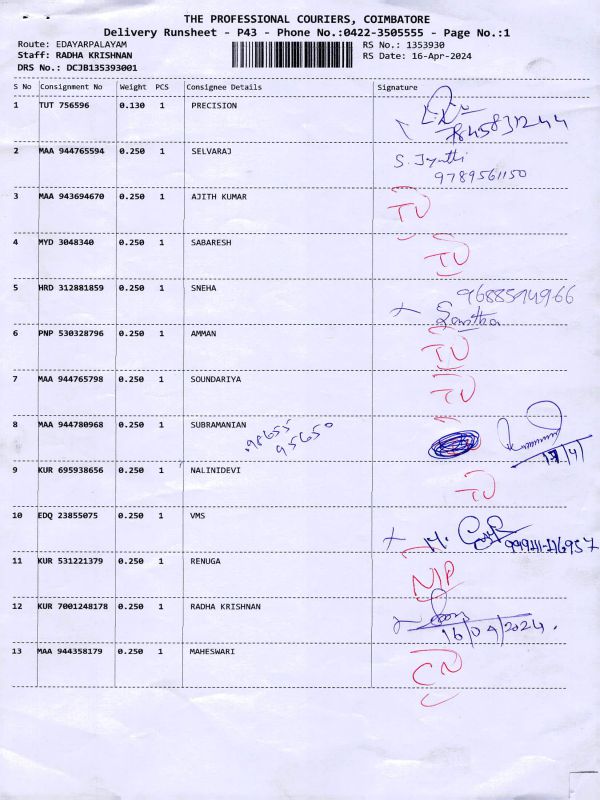 THE PROFESSIONAL COURIERS, COIMBATORE
Delivery Runsheet - P43 - Phone No.:0422-3505555 - Page No.:1
Route: EDAYARPALAYAM RS No.: 1353930
Staff: RADHA KRISHNAN RS Date: 16-Apr-2024
DRS No.: DCJB135393001
S No Consignment No Weight PCS Consignee Details Signature
1 TUT 756596 0.130 1 PRECISION
7845831244
2 MAA 944765594 0.250 1 SELVARAJ S. Jyothi
9789561150
3 MAA 943694670 0.250 1 AJITH KUMAR
4 MYD 3048340 0.250 1 SABARESH
5 HRD 312881859 0.250 1 SNEHA
6 PNP 530328796 0.250 1 AMMAN
7 MAA 944765798 0.250 1 SOUNDARIYA
8 MAA 944780968 0.250 1 SUBRAMANIAN
98655
95650
9 KUR 695938656 0.250 1 NALINIDEVI
10 EDQ 23855075 0.250 1 VMS
11 KUR 531221379 0.250 1 RENUGA
12 KUR 7001248178 0.250 1 RADHA KRISHNAN
16/04/2024.
13 MAA 944358179 0.250 1 MAHESWARI